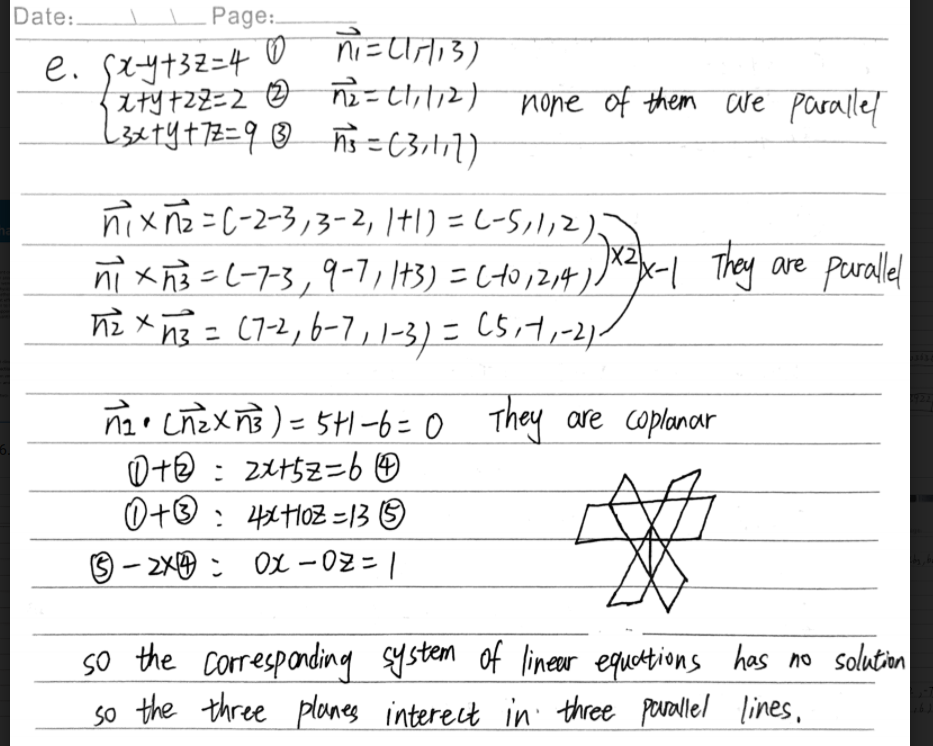 Date: \ \ Page:
e. { x-y+3z=4 ① n₁⃗=(1,-1,3)
x+y+2z=2 ② n₂⃗=(1,1,2) none of them are parallel
3x+y+7z=9 ③ n₃⃗=(3,1,7)
n₁⃗×n₂⃗=(-2-3,3-2,1+1)=(-5,1,2)
n₁⃗×n₃⃗=(-7-3,9-7,1+3)=(-10,2,4) ×2 ×-1 They are parallel
n₂⃗×n₃⃗=(7-2,6-7,1-3)=(5,-1,-2)
n₁⃗•(n₂⃗×n₃⃗)=5+1-6=0 They are coplanar
①+②: 2x+5z=6 ④
①+③: 4x+10z=13 ⑤
⑤-2×④: 0x-0z=1
so the corresponding system of linear equations has no solution
so the three planes interect in three parallel lines.